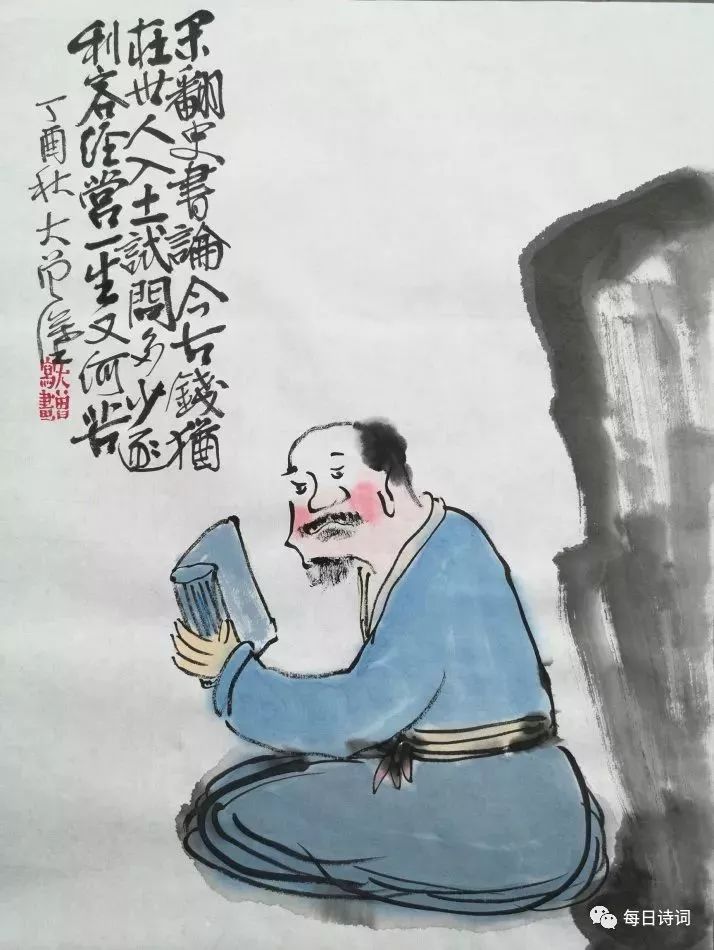 呆翻史書論今古錢猶
在世人入土試問多少逐
利客经营一生又何苦
丁酉秋大曾
每日诗词